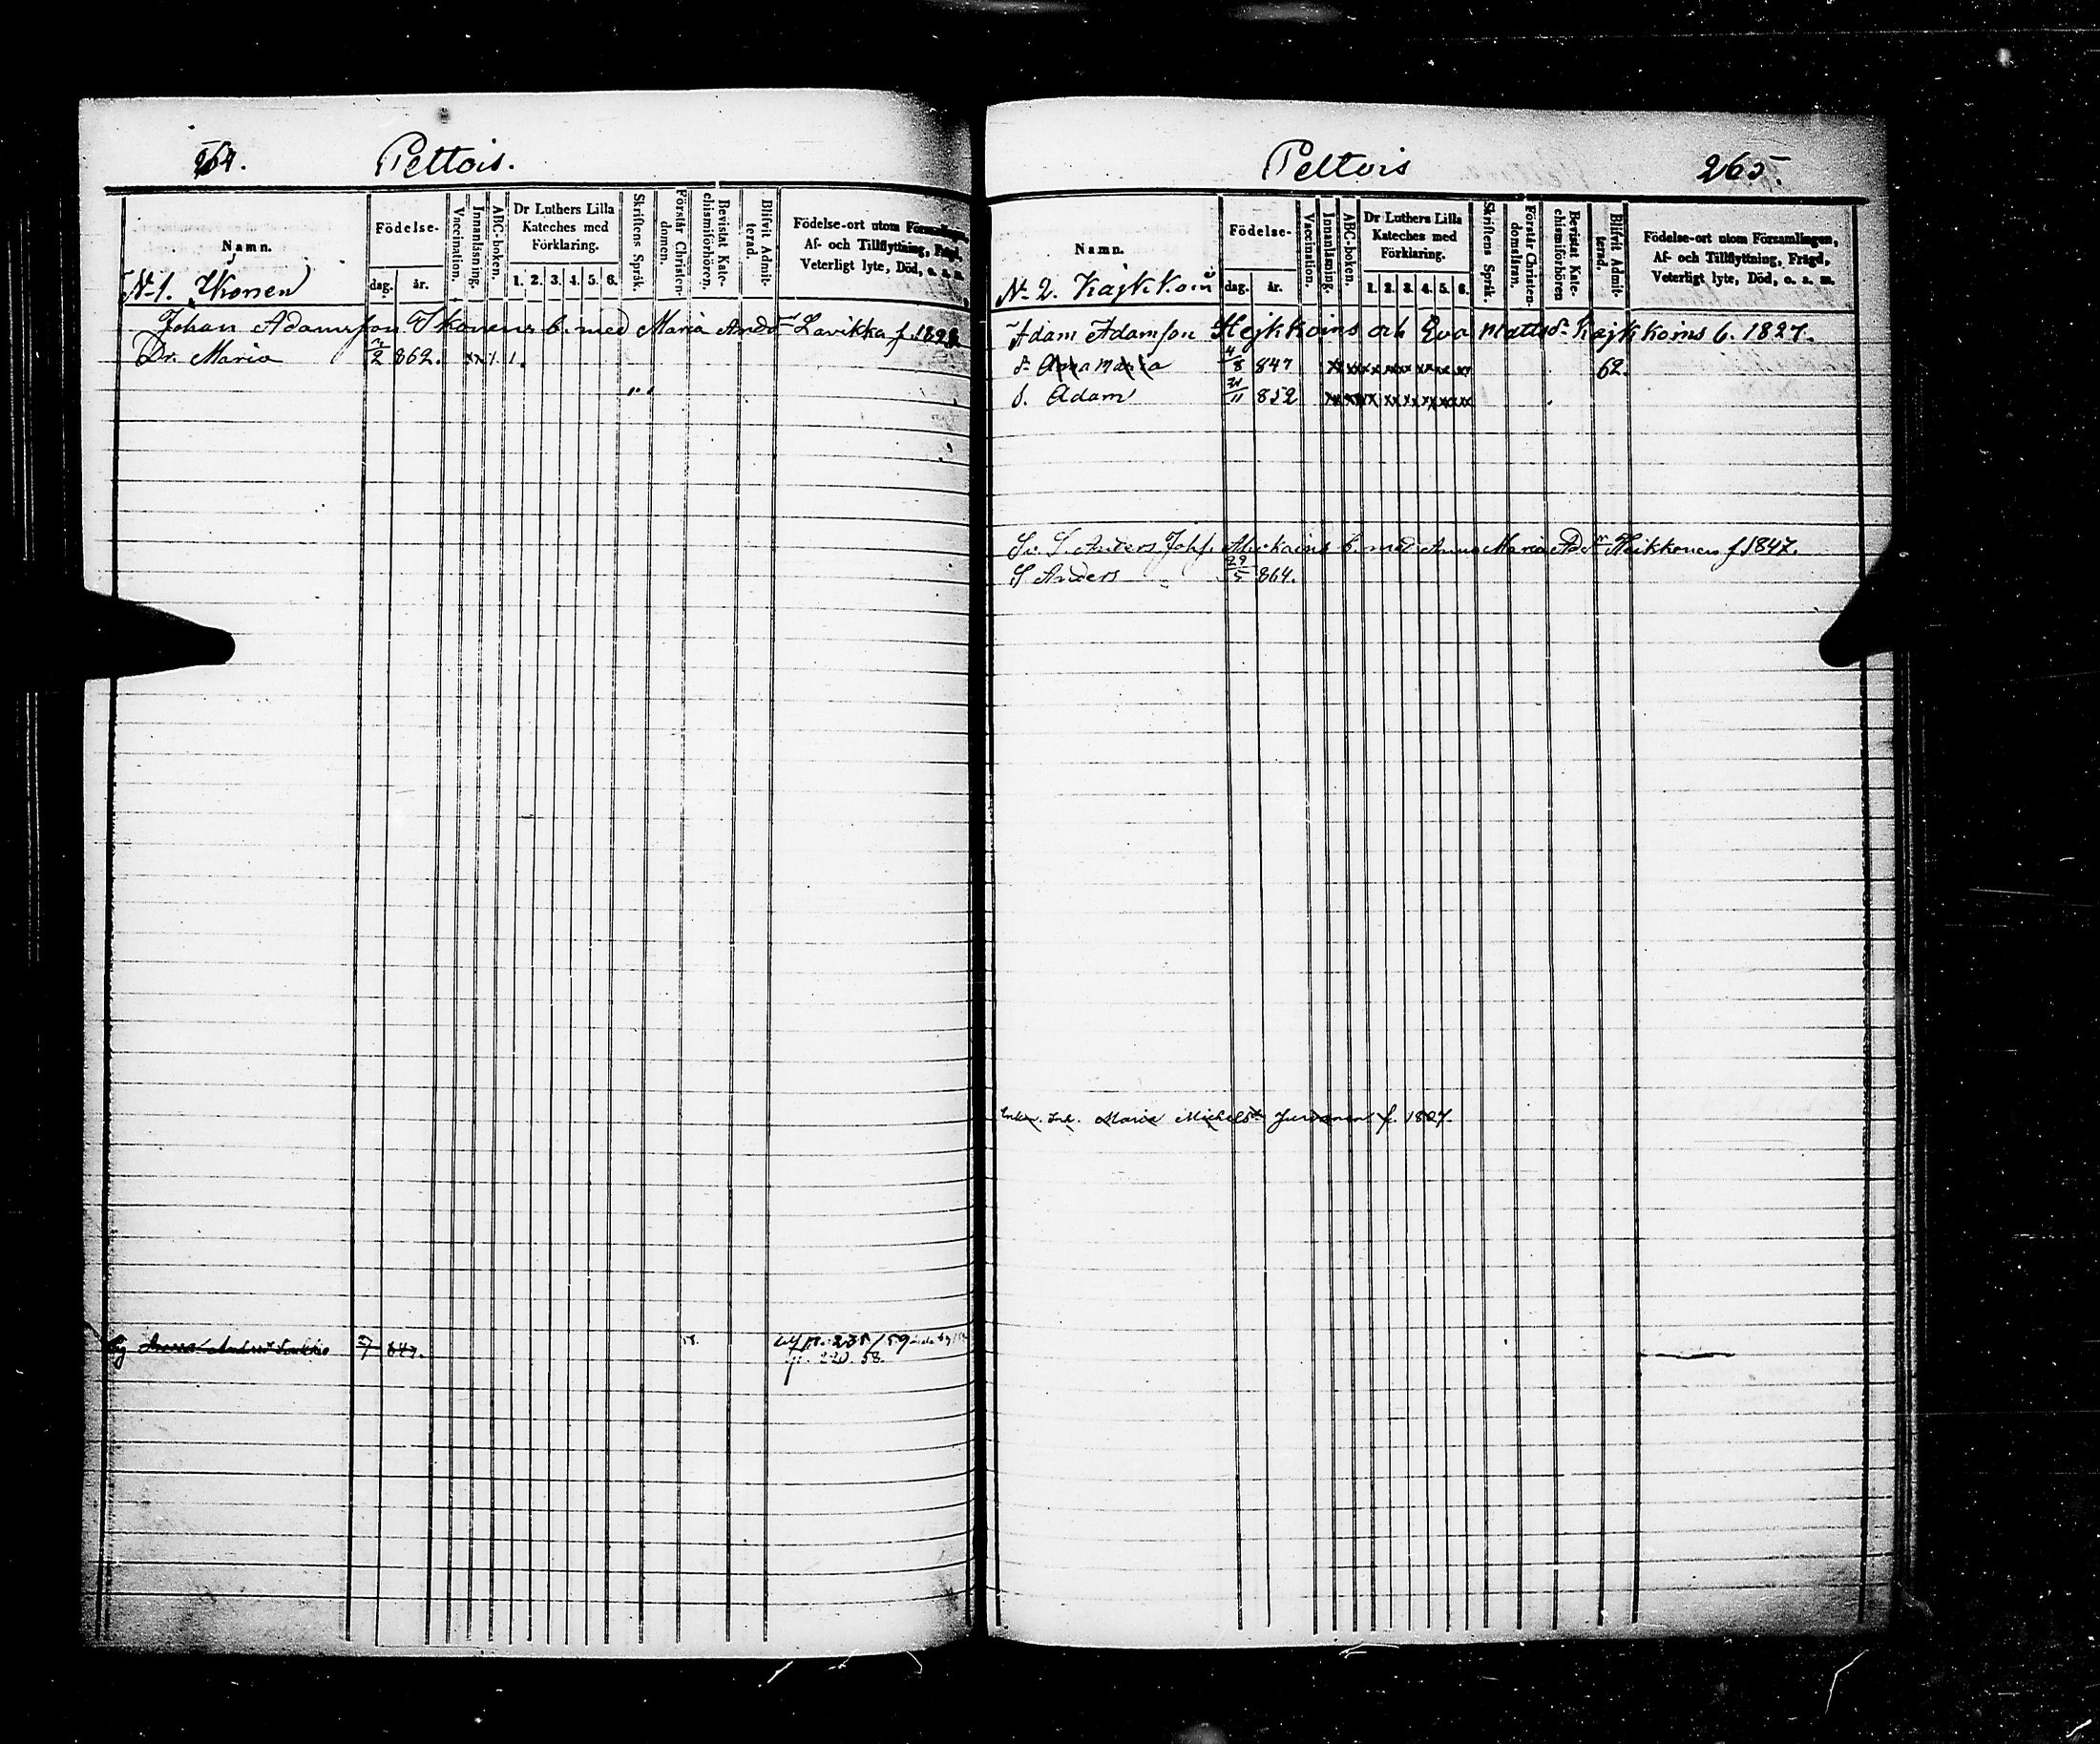 264. Peltois.
Namn. Födelse- dag. år. Vaccination. Innanläsning. ABC-boken. Dr Luthers Lilla Kateches med Förklaring. 1. 2. 3. 4. 5. 6. Skriftens Språk. Förstår Christen-domen. Bevistat Kate-chismiförhören. Blifvit Admit-terad. Födelse-ort utom Församlingen, Af- och Tillflyttning, Frägd, Veterligt lyte, Död, o. s. m.
N-1. Ikonen
Johan Adamsson Ikonens b. med Maria Andr Lavikka f.
Dr. Maria 2 862. xx 1 1.
847.
fr. 220. 58.
Peltois 265.
Namn. Födelse- dag. år. Vaccination. Innanläsning. ABC-boken. Dr Luthers Lilla Kateches med Förklaring. 1. 2. 3. 4. 5. 6. Skriftens Språk. Förstår Christen-domsläran. Bevistat Kate-chismiförhören Blifvit Admit-terad. Födelse-ort utom Församlingen, Af- och Tillflyttning, Frägd, Veterligt lyte, Död, o. s. m.
N- 2. Kajkkoin
Adam Adamson Hejkkoins och Eva Mattsd- Kajkkoins b. 1827.
d- Anna Maria 4/8 847 xx xx xx xx xx xx xx xx 62.
S. Adam 21/11 852 xx xx xx xx xx xx xx xx
Sv. S. Anders Johs. b. med Anna Maria Ad Heikkonen f 1847.
S Anders 29/5 864.
Enkan. Ink. Maria Michelsdr Jurvanen f. 1827.